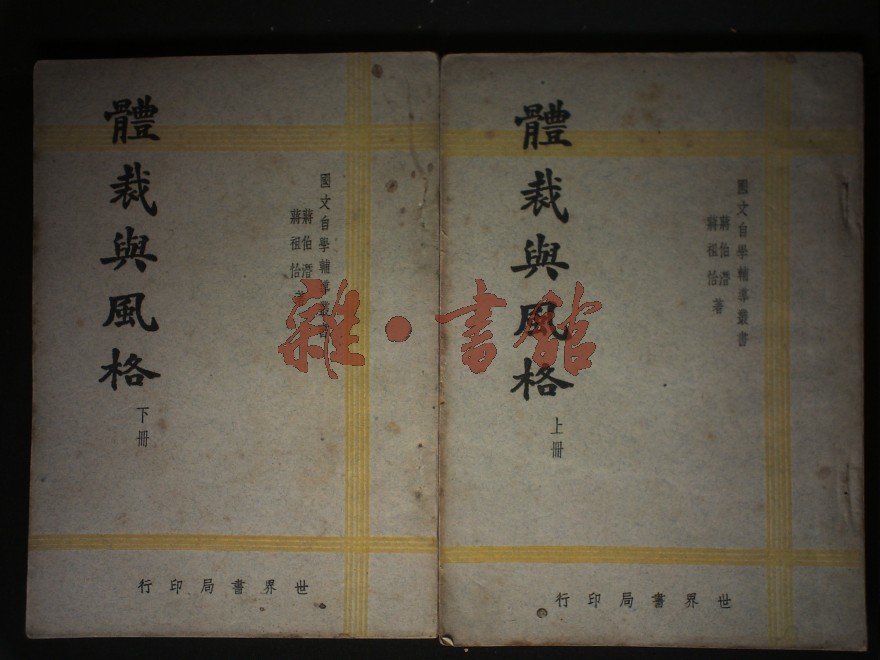 國文自學輔導叢書
蔣伯潛
蔣祖怡
著
體裁與風格
上冊
世界書局印行
國文自學輔導叢書
蔣伯潛
蔣祖怡
著
體裁與風格
下冊
世界書局印行
雜·書館